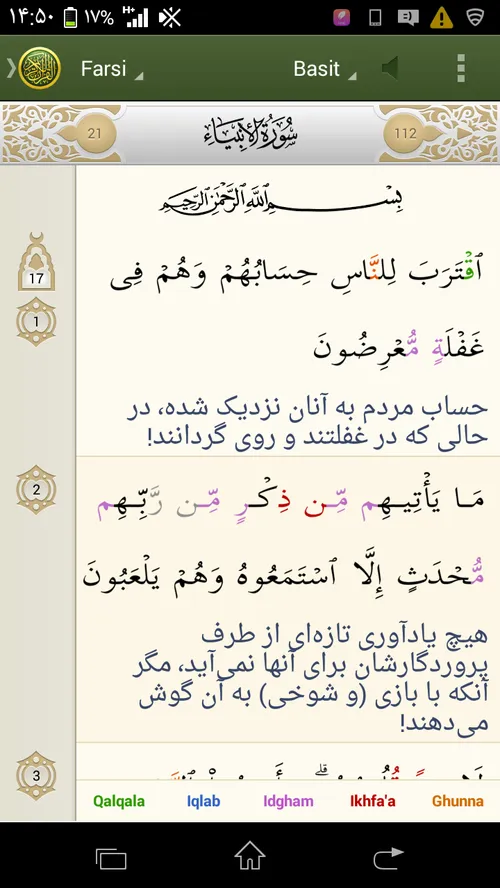 ۱۴:۵۰ ۱۷% H+
Farsi Basit
21 سُورَةُ الأَنْبِيَاء 112
بِسْمِ اللَّهِ الرَّحْمَٰنِ الرَّحِيمِ
17
ٱقْتَرَبَ لِلنَّاسِ حِسَابُهُمْ وَهُمْ فِى
1
غَفْلَةٍ مُّعْرِضُونَ
حساب مردم به آنان نزدیک شده، در
حالی که در غفلتند و روی گردانند!
2
مَا يَأْتِيهِم مِّن ذِكْرٍ مِّن رَّبِّهِم
مُّحْدَثٍ إِلَّا ٱسْتَمَعُوهُ وَهُمْ يَلْعَبُونَ
هیچ یادآوری تازه‌ای از طرف
پروردگارشان برای آنها نمی‌آید، مگر
آنکه با بازی (و شوخی) به آن گوش
می‌دهند!
3
Qalqala Iqlab Idgham Ikhfa'a Ghunna